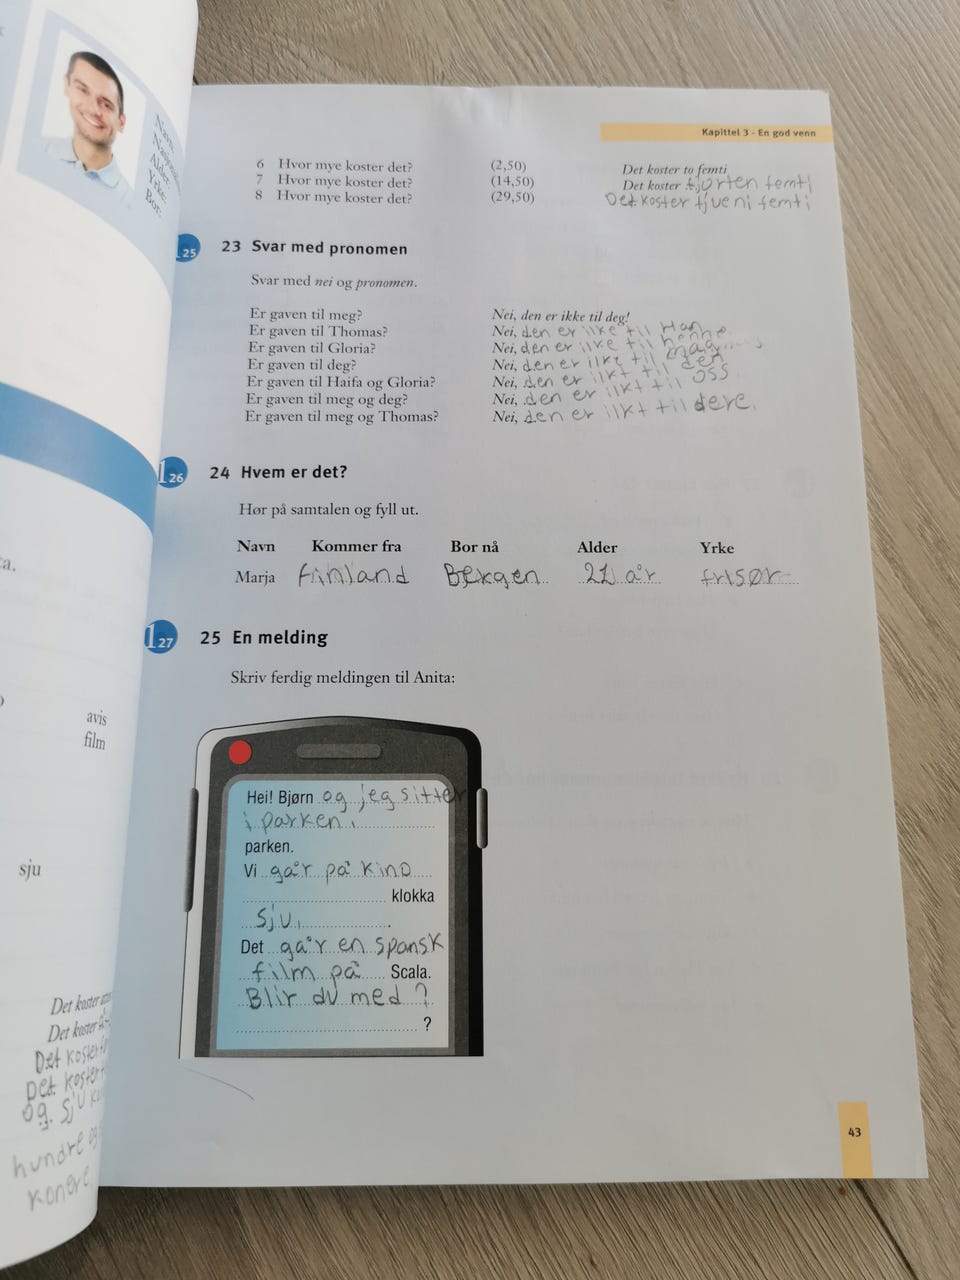 Navn:
Alder:
Yrke:
Bor:
Kapittel 3 - En god venn
6 Hvor mye koster det? (2,50) Det koster to femti
7 Hvor mye koster det? (14,50) Det koster fjorten femti
8 Hvor mye koster det? (29,50) Det koster tjueni femti
25
23 Svar med pronomen
Svar med nei og pronomen.
Er gaven til meg? Nei, den er ikke til deg!
Er gaven til Thomas? Nei, den er ikke til Han
Er gaven til Gloria? Nei, den er ikke til henne
Er gaven til deg? Nei, den er ikt til
Er gaven til Haifa og Gloria? Nei, den er ikt til den
Er gaven til meg og deg? Nei, den er ikt til oss
Er gaven til meg og Thomas? Nei, den er ikt til dere.
1 26
24 Hvem er det?
Hør på samtalen og fyll ut.
Navn Kommer fra Bor nå Alder Yrke
Marja Finland Bergen 21 år frisør
1 27
25 En melding
Skriv ferdig meldingen til Anita:
Hei! Bjørn og jeg sitter
i parken.
parken.
Vi går på kino
klokka
sju.
Det går en spansk
film på Scala.
Blir du med?
?
43
ta.
avis
film
sju
Det koster
Det koster
Det koster
Det koster
og. sju
hundre og